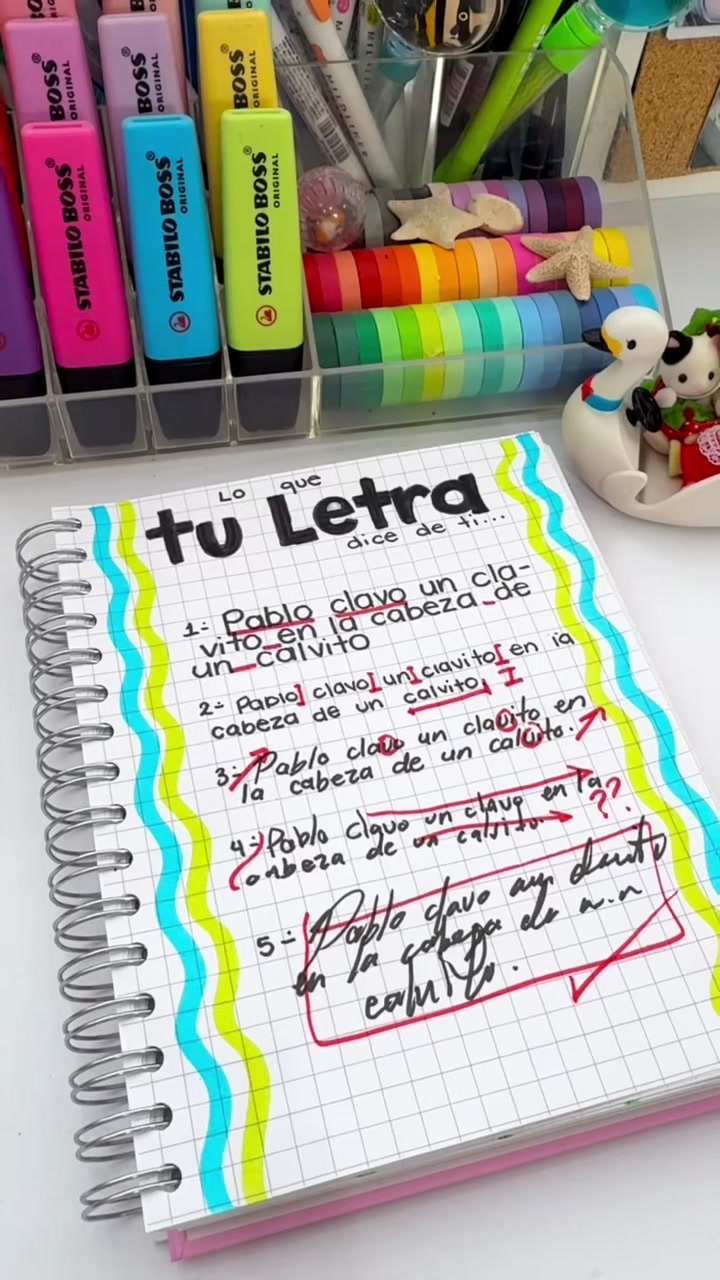 BOSS ORIGINAL
BOSS ORIGINAL
BOSS ORIGINAL
STABILO BOSS ORIGINAL
STABILO BOSS ORIGINAL
STABILO BOSS ORIGINAL
Lo que
tu Letra
dice de ti...
1÷ Pablo clavo un cla-
vito en la cabeza de
un calvito
2÷ Pablo clavo un clavito en la
cabeza de un calvito
3÷ Pablo clavo un clavito en
la cabeza de un calvito.
4÷ Pablo clavo un clavo en la
cabeza de un calvito ??
5÷ Pablo clavo un clavito
en la cabeza de un
calvito.